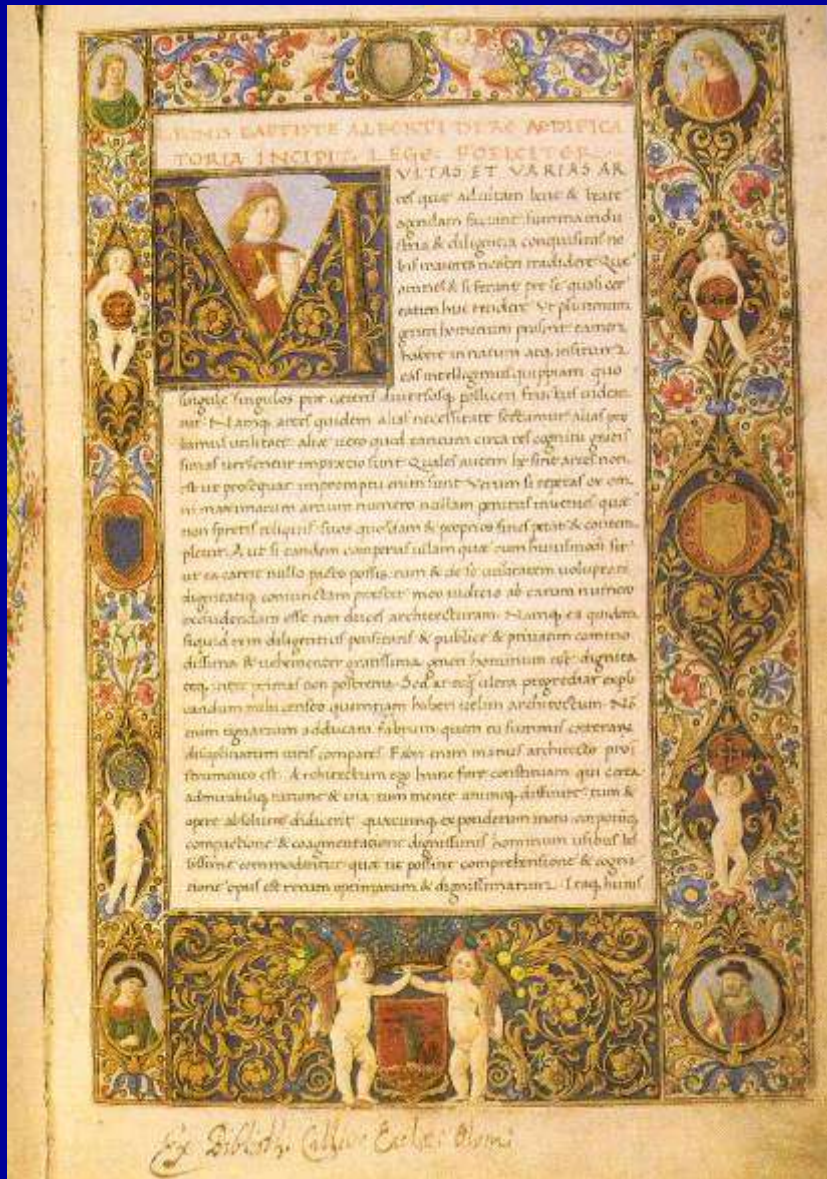 LEONIS BAPTISTE ALBERTI DE RE AEDIFICA
TORIA INCIPIT. LEGE. FOELICITER
MVLTAS ET VARIAS AR
tes quae ad vitam bene & beate
agendam faciant summa indu
stria & diligentia conquisitas no
bis maiores nostri tradidere Que
omnes & si ferant pre se quasi cer
tatim huc tendere Vt plurimum
generi hominum prosint tamen
habere innatum atq insitum
eas intelligimus quippiam quo
singule singulos pre ceteris diversosq polliceri fructus videan
tur. Namq artes quidem alias necessitate sectamur alias pro
bamus utilitate aliae vero quod tantum circa res cognitu gratis
simas versentur in praetio sunt Quales autem he sint artes non
est ut prosequar in promptu enim sunt Verum si repetas ex om
ni maximarum artium numero nullam penitus invenies quae
non spretis reliquis suos quosdam & proprios fines petat & contem
pletur. Aut si tandem comperias ullam quae cum huiusmodi sit
ut ea carere nullo pacto possis. tum & de se utilitatem voluptati
dignitatiq coniunctam praestet meo iudicio ab earum numero
excludendam esse non duces architecturam. Namq ea quidem
siquid rem diligentius pensitaris & publice & privatim commo
dissima & vehementer gratissima generi hominum est dignita
teq inter primas non postrema. Sed ante q ultra progrediar expli
candum mihi censeo quemnam haberi velim architectum. No
enim tignarium adducam fabrum quem tu summis ceterarum
disciplinarum viris compares Fabri enim manus architecto pro in
strumento est. Architectum ego hunc fore constituam qui certa
admirabiliq ratione & via tum mente animoq diffinire tum &
opere absolvere didicerit quaecumq ex ponderum motu corporumq
compactione & coagmentatione dignissimis hominum usibus bel
lissime commodentur quae ut possint comprehensione & cogni
tione opus est rerum optimarum & dignissimarum. Itaq huius
Ex Biblioth.